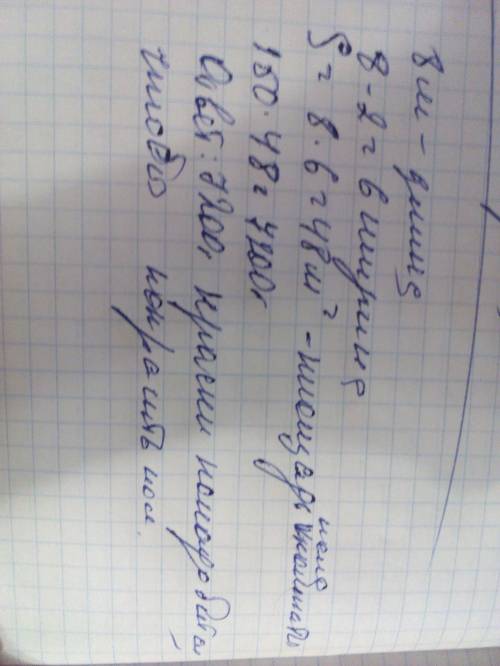 8 м - длина
8 - 2 = 6 ширина
S = 8 · 6 = 48 м² - площадь пола комнаты
150 · 48 = 7200г
Ответ: 7200г краски понадобится,
чтобы покрасить пол.